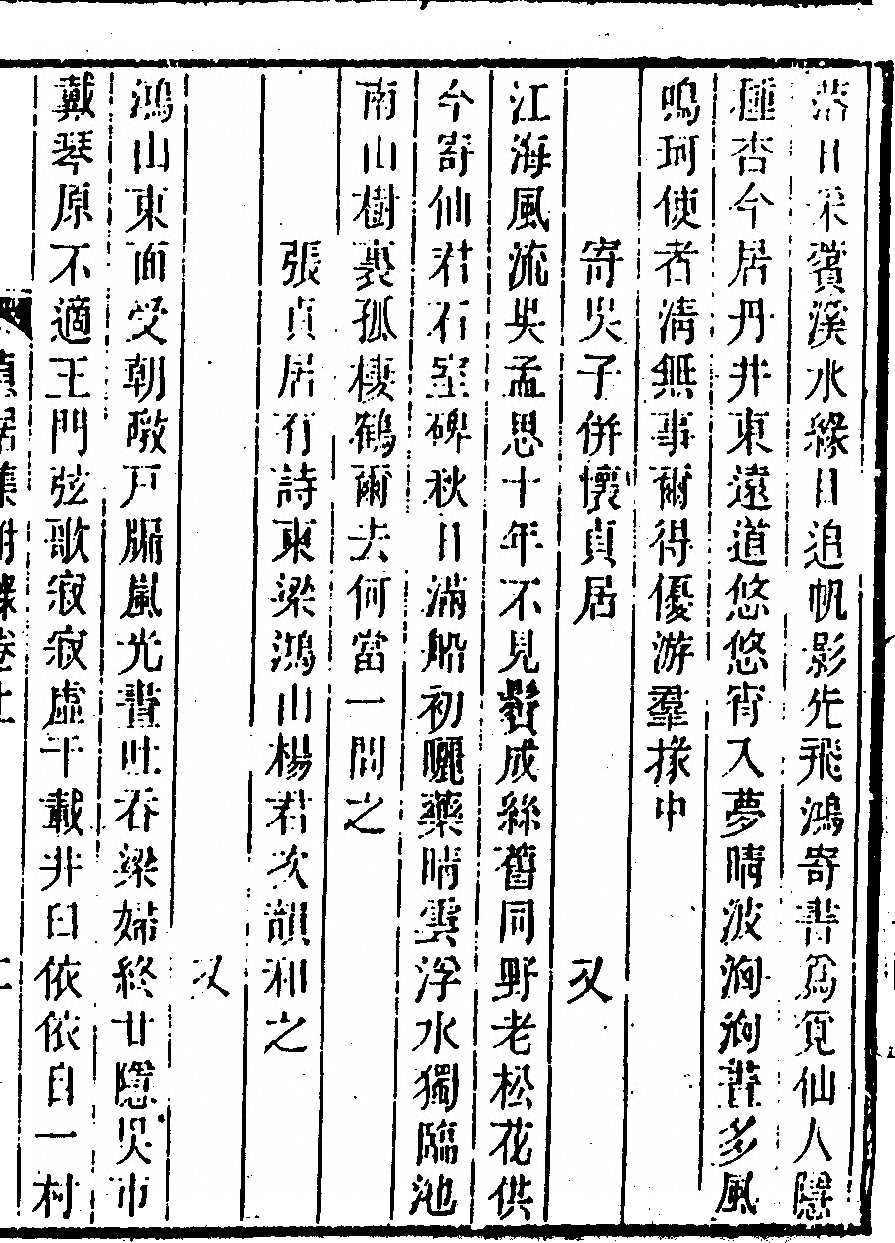 落日來賓溪水緣目追帆影先飛鴻寄書爲覓仙人隱
種杏今居丹井東遠道悠悠宵入夢晴波洶洶昔多風
鳴珂使者淸無事爾得優游羣掾中
寄吳子併懷貞居
又
江海風流吳孟思十年不見鬢成絲舊同野老松花供
今寄仙君石室碑秋日滿船初曬藥晴雲浮水獨臨池
南山樹裏孤棲鶴爾去何當一問之
張貞居有詩柬梁鴻山楊君次韻和之
又
鴻山東面受朝暾戸牖嵐光晝吐吞梁婦終甘隱吳市
戴琴原不適王門弦歌寂寂虛千載井臼依依自一村
貞居集附錄卷上